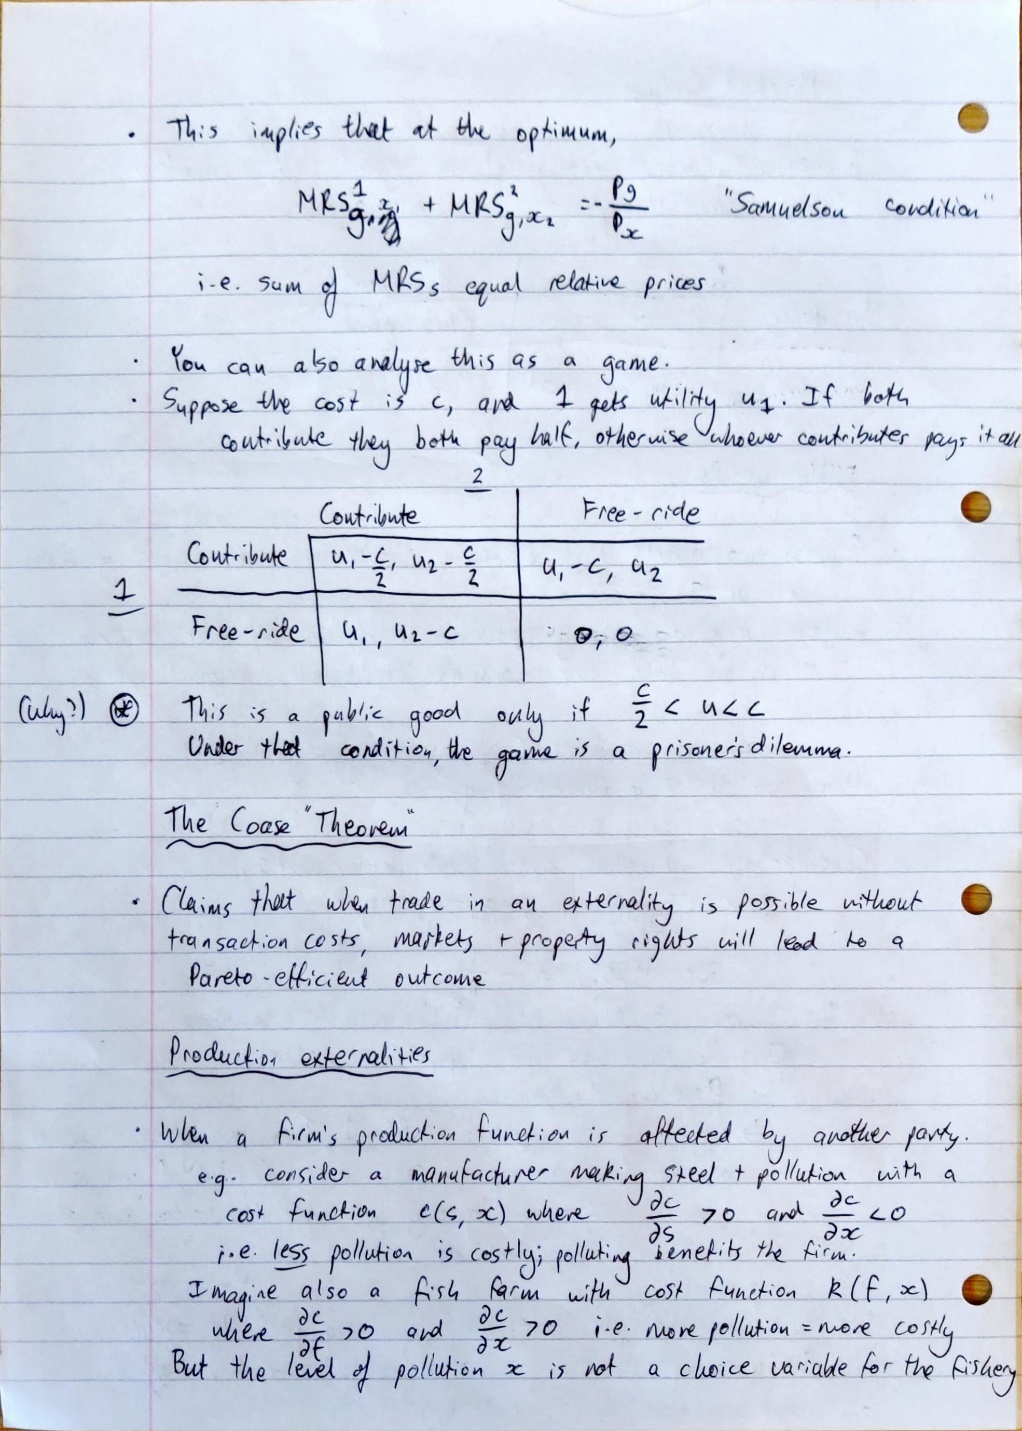 · This implies that at the optimum,
MRS¹ + MRS²g,x₂ = - Pg/Px "Samuelson condition"
i.e. sum of MRSs equal relative prices
· You can also analyse this as a game.
· Suppose the cost is c, and 1 gets utility u₁. If both
contribute they both pay half, otherwise whoever contributes pays it all
2
Contribute Free-ride
Contribute u₁-c/2, u₂-c/2 u₁-c, u₂
1
Free-ride u₁, u₂-c 0, 0
(why?) * This is a public good only if c/2 < u < c
Under that condition, the game is a prisoner's dilemma.
The Coase "Theorem"
· Claims that when trade in an externality is possible without
transaction costs, markets + property rights will lead to a
Pareto-efficient outcome
Production externalities
· When a firm's production function is affected by another party.
e.g. consider a manufacturer making steel + pollution with a
cost function c(s, x) where ∂c/∂s > 0 and ∂c/∂x < 0
i.e. less pollution is costly; polluting benefits the firm.
Imagine also a fish farm with cost function k(f, x)
where ∂c/∂f > 0 and ∂c/∂x > 0 i.e. more pollution = more costly
But the level of pollution x is not a choice variable for the fishery